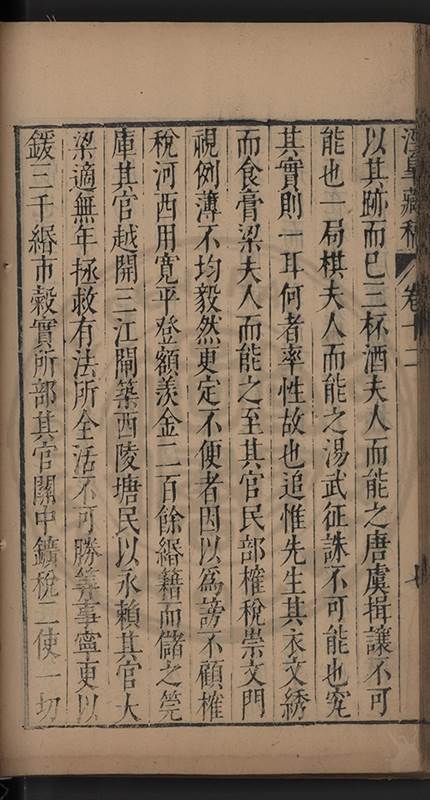 以其跡而巳三杯酒夫人而能之唐虞揖讓不可
能也一局棋夫人而能之湯武征誅不可能也究
其實則一耳何者率性故也追惟先生其衣文綉
而食膏粱夫人而能之至其官民部榷稅崇文門
視例薄不均毅然更定不便者因以為謗不顧榷
稅河西用寬平登額羨金二百餘緡籍而儲之筦
庫其官越開三江閘築西陵塘民以永賴其官大
梁適無年拯救有法所全活不可勝筭事寧更以
鍰三千緡市穀實所部其官關中鑛稅二使一切
藏稿 卷十二